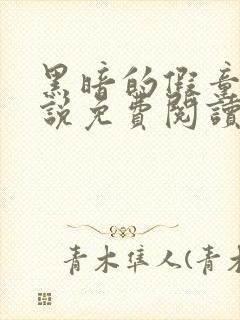 黑暗的假童
說免費閱讀
青木隼人(青木